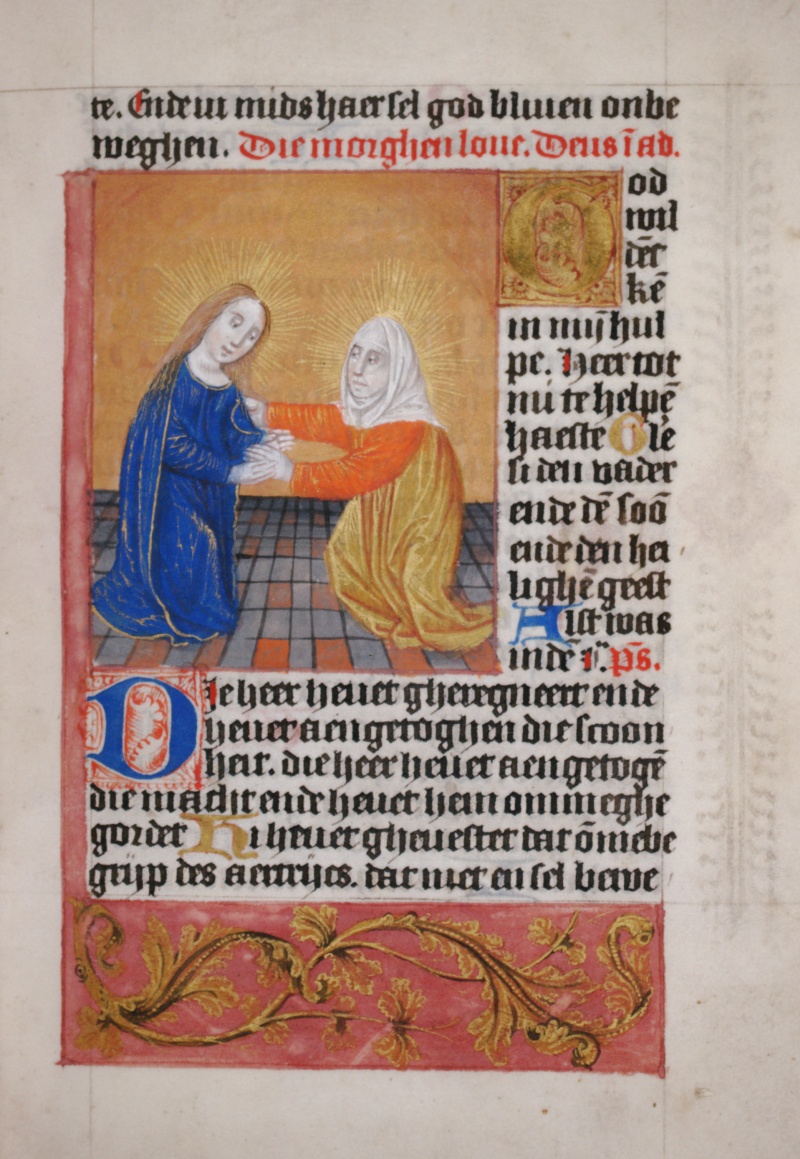 te. Ende in mids haer sel god bliuen onbe
weghen. Die morghen loue. Deus ī ad.
God
wil
dēc
kē
in mijn hul
pe. Heer tot
mi te helpē
haeste Gle
si den vader
ende dē soō
ende den hei
lighē geest
Alst was
in dē ps̄.
Die heer heuet gheregneert ende
heuet aengetoghen die scoon
heit. die heer heuet aengetogē
die macht ende heuet hem ommeghe
gordet Hi heuet gheuestet dat ōmebe
grijp des aertrijcs. dat niet en sel bewe